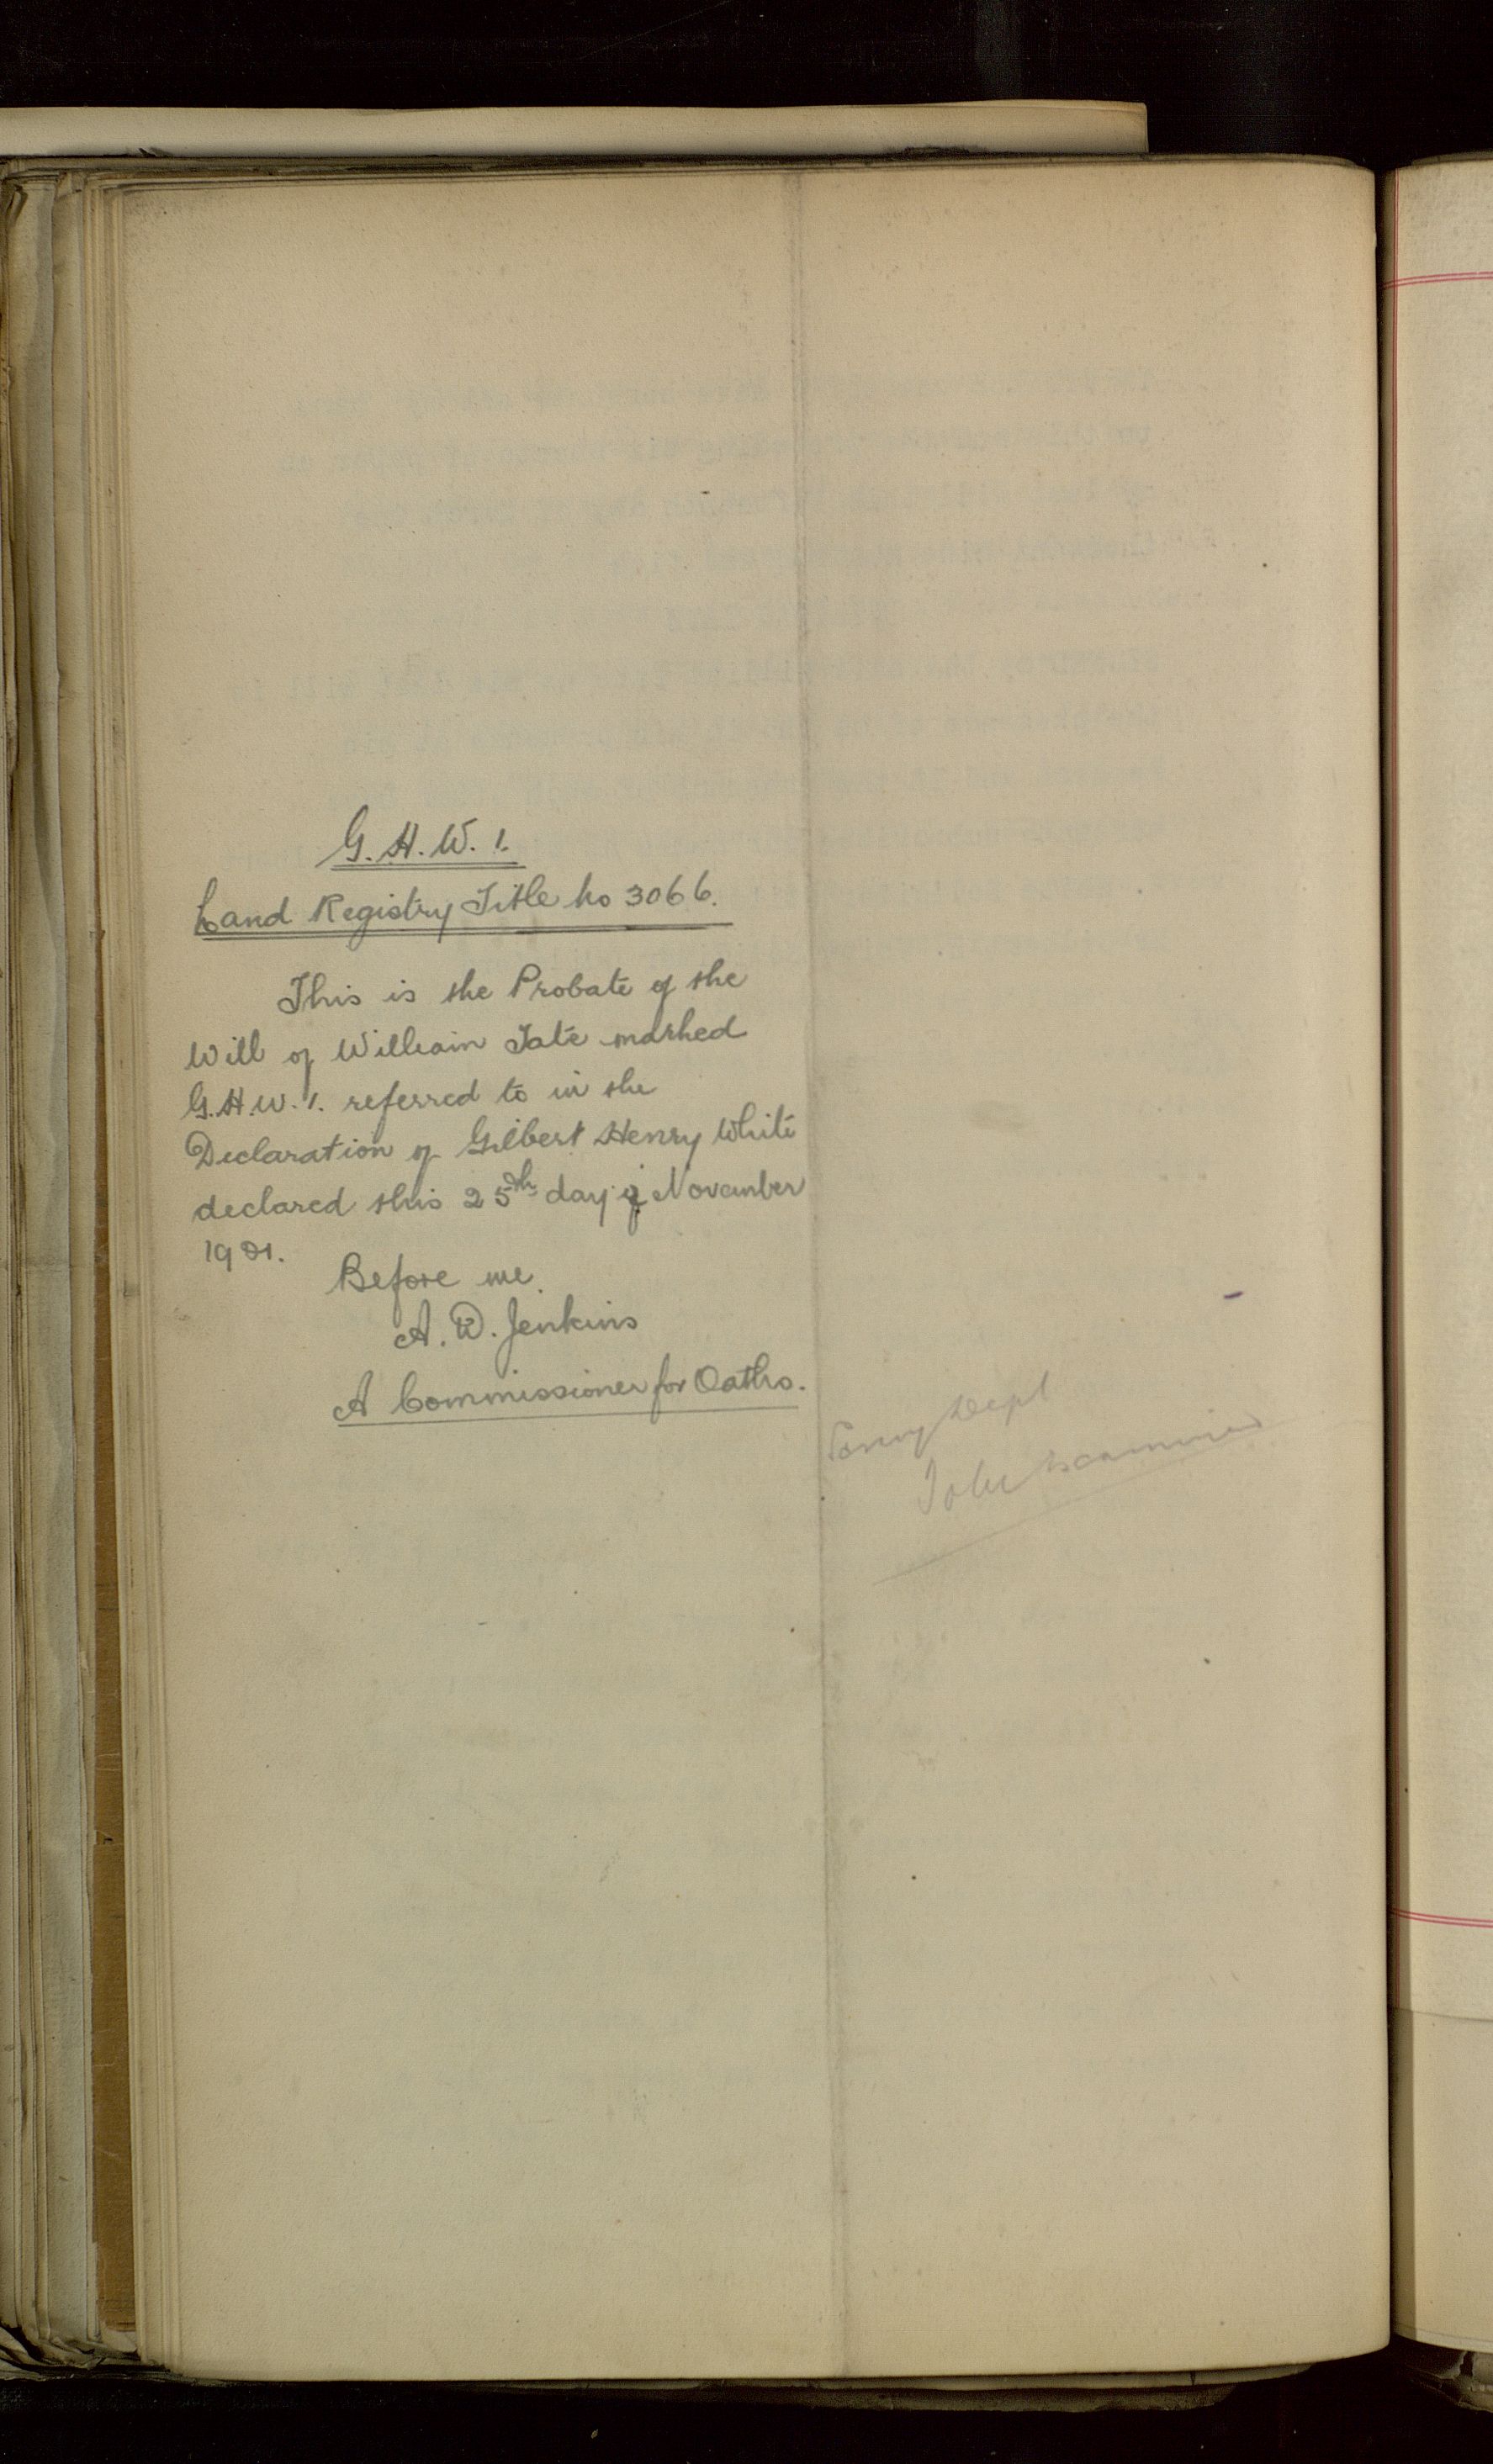 G. H. W. 1.
Land Registry Title No 3066.
This is the Probate of the
Will of William Tate marked
G.H.W.1. referred to in the
Declaration of Gilbert Henry White
declared this 25th day of November
Before me.
A. W. Jenkins
A Commissioner for Oaths.
Dept